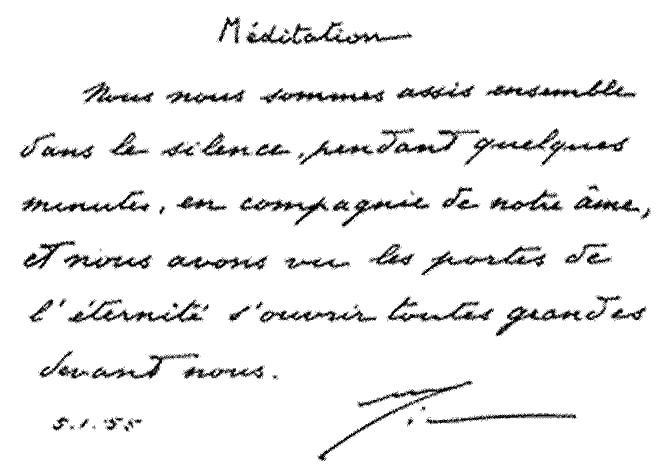 Méditation
Nous nous sommes assis ensemble
dans le silence, pendant quelques
minutes, en compagnie de notre âme,
et nous avons vu les portes de
l'éternité s'ouvrir toutes grandes
devant nous.
5.1.55